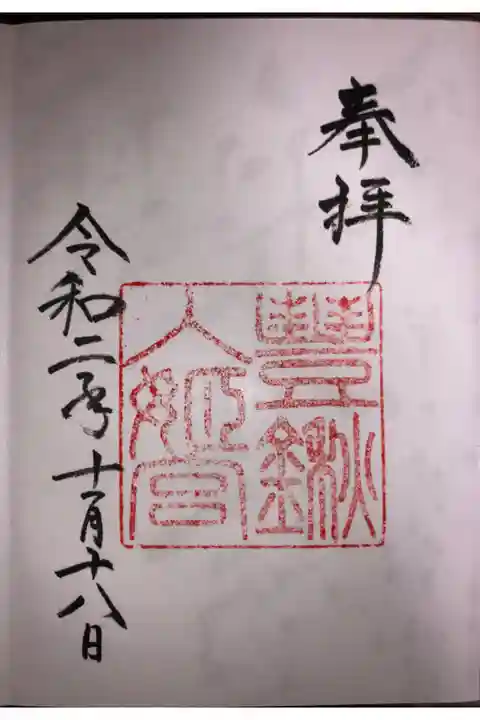 奉拝
豊鍬
入姫宮
令和二年十月十八日